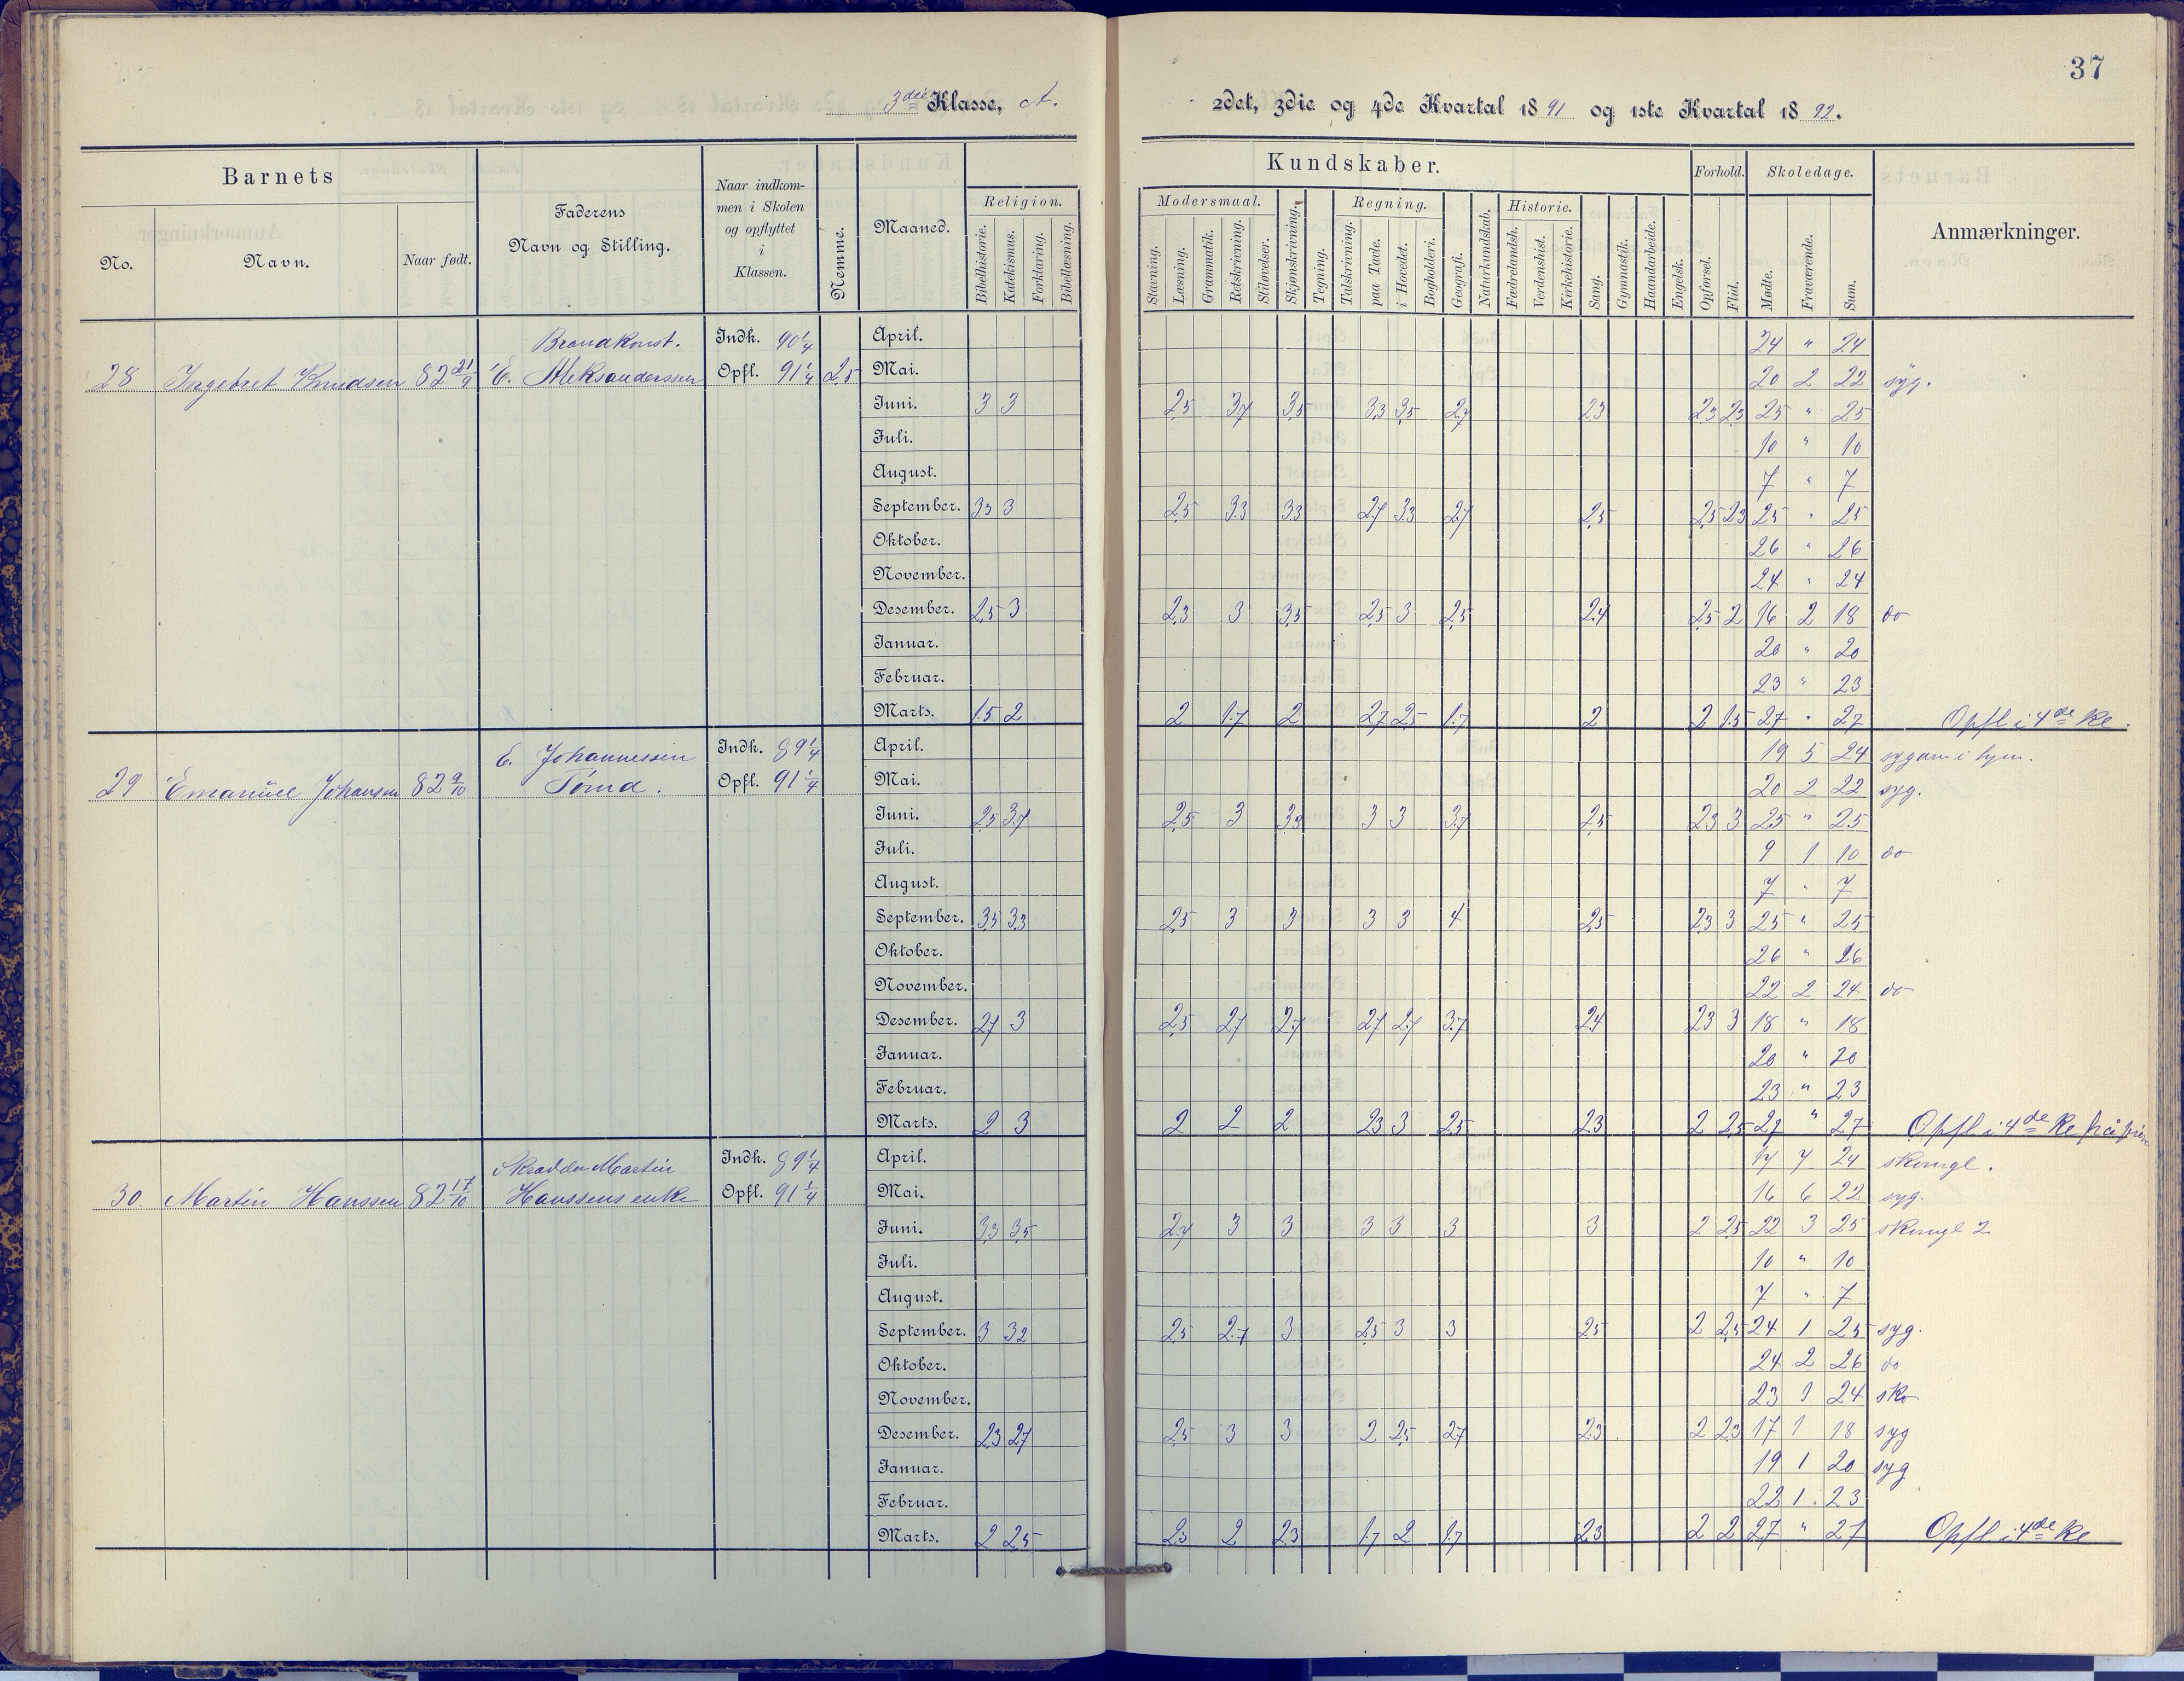 37
3die Klasse, A.
2det, 3die og 4de Kvartal 1891 og 1ste Kvartal 1892.
Barnets
No.
Navn.
Naar født.
Faderens
Navn og Stilling.
Naar indkom-
men i Skolen
og opflyttet
i
Klassen.
Nemme.
Maaned.
Kundskaber.
Religion.
Bibelhistorie. Katekismus. Forklaring. Bibellæsning.
Modersmaal.
Stavning. Læsning. Grammatik. Retskrivning. Stiløvelser. Skjønskrivning. Tegning.
Regning.
Talskrivning. paa Tavle. i Hovedet. Bogholderi. Geografi. Naturkundskab.
Historie.
Fædrelandsh. Verdenshist. Kirkehistorie. Sang. Gymnastik. Haandarbeide. Engelsk.
Forhold.
Opførsel. Flid.
Skoledage.
Mødte. Fraværende. Sum.
Anmærkninger.
Brandkonst. Indk. 90 1/4 April. 24 " 24
28 Ingebret Knudsen 82 21/9 E. Aleksanderssen Opfl. 91 1/4 2,5 Mai. 20 2 22 syg.
Juni. 3 3 2,5 3,7 3,5 3,3 3,5 2,7 2,3 2,3 2,3 25 " 25
Juli. 10 " 10
August. 7 " 7
September. 3,3 3 2,5 3,3 3,3 2,7 3,3 2,7 2,5 2,5 2,3 25 " 25
Oktober. 26 " 26
November. 24 " 24
Desember. 2,5 3 2,3 3 3,5 2,5 3 2,5 2,4 2,5 2 16 2 18 do
Januar. 20 " 20
Februar. 23 " 23
Marts. 1,5 2 2 1,7 2 2,7 2,5 1,7 2 2 1,5 27 " 27 Opfl i 4de Kl.
E. Johannessen Indk. 89 1/4 April. 19 5 24
29 Emanuel Johansen 82 9/10 Tømd. Opfl. 91 1/4 Mai. 20 2 22 syg.
Juni. 2,5 3,7 2,5 3 3,3 3 3 3,7 2,5 2,3 3 25 " 25
Juli. 9 1 10 do
August. 7 " 7
September. 3,5 3,3 2,5 3 3 3 3 4 2,5 2,3 3 25 " 25
Oktober. 26 " 26
November. 22 2 24 do
Desember. 2,7 3 2,5 2,7 2,7 2,7 2,7 3,7 2,4 2,3 3 18 " 18
Januar. 20 " 20
Februar. 23 " 23
Marts. 2 3 2 2 2 2,3 3 2,5 2,3 2 2,5 27 " 27 Opfl i 4de Kl på prøve
Skrædder Martin Indk. 89 1/4 April. 17 7 24 skomgl.
30 Martin Hanssen 82 17/10 Hanssens enke Opfl. 91 1/4 Mai. 16 6 22 syg.
Juni. 3,3 3,5 2,7 3 3 3 3 3 3 2 2,5 22 3 25 skomgl 2
Juli. 10 " 10
August. 7 " 7
September. 3 3,2 2,5 2,7 3 2,5 3 3 2,5 2 2,5 24 1 25 syg.
Oktober. 24 2 26 do
November. 23 1 24 sko
Desember. 2,3 2,7 2,5 3 3 2 2,5 2,7 2,3 2 2,3 17 1 18 syg
Januar. 19 1 20 syg
Februar. 22 1 23
Marts. 2 2,5 2,3 2 2,3 1,7 2 1,7 2,3 2 2 27 " 27 Opfl i 4de Kl